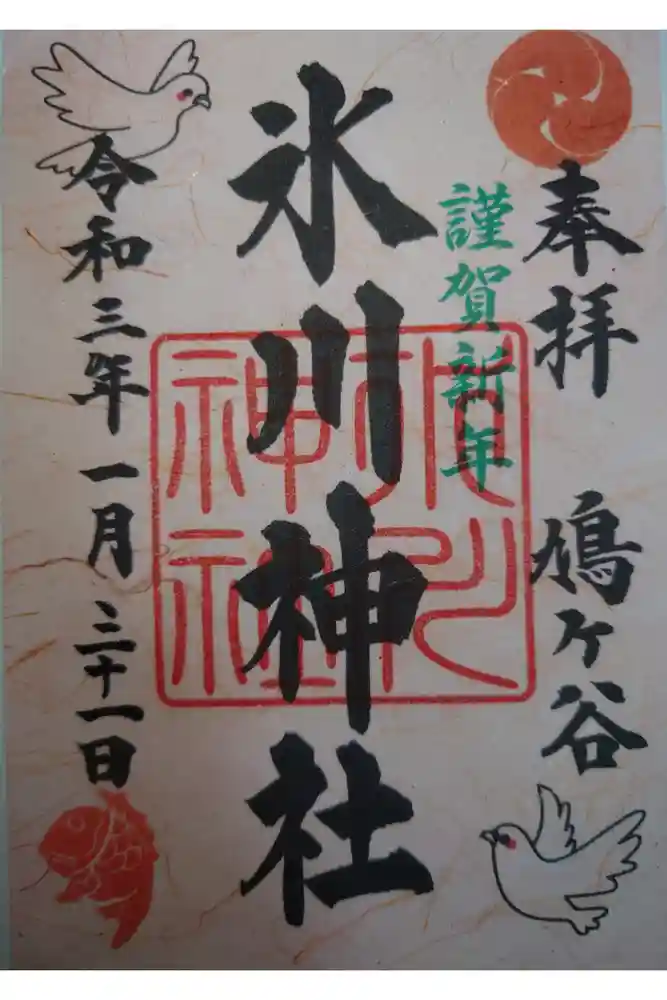 奉拝 鳩ヶ谷
謹賀新年
氷川神社
氷川神社
令和三年一月三十一日